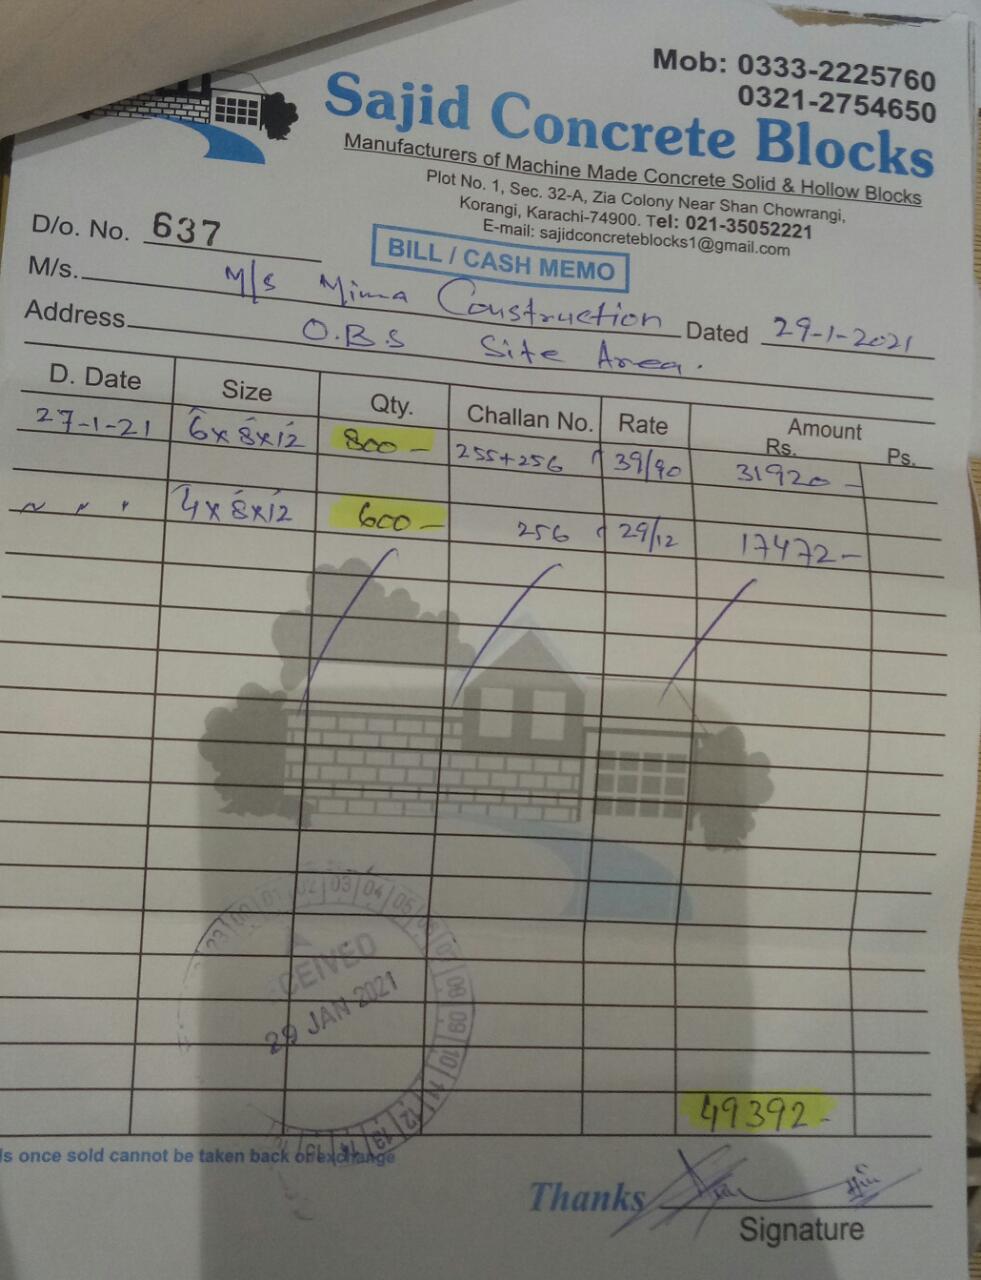 Mob: 0333-2225760
0321-2754650
Sajid Concrete Blocks
Manufacturers of Machine Made Concrete Solid & Hollow Blocks
Plot No. 1, Sec. 32-A, Zia Colony Near Shan Chowrangi,
Korangi, Karachi-74900. Tel: 021-35052221
E-mail: sajidconcreteblocks1@gmail.com
D/o. No. 637
BILL / CASH MEMO
M/s. M/s Construction Dated 29-1-2021
Address O.B.S Site Area.
D. Date Size Qty. Challan No. Rate Amount
Rs. Ps.
27-1-21 6x8x12 800- 255+256 39/90 31920-
" " " 4x8x12 600- 256 29/12 17472-
CEIVED
29 JAN 2021
49392-
ls once sold cannot be taken back or exchange
Thanks
Signature